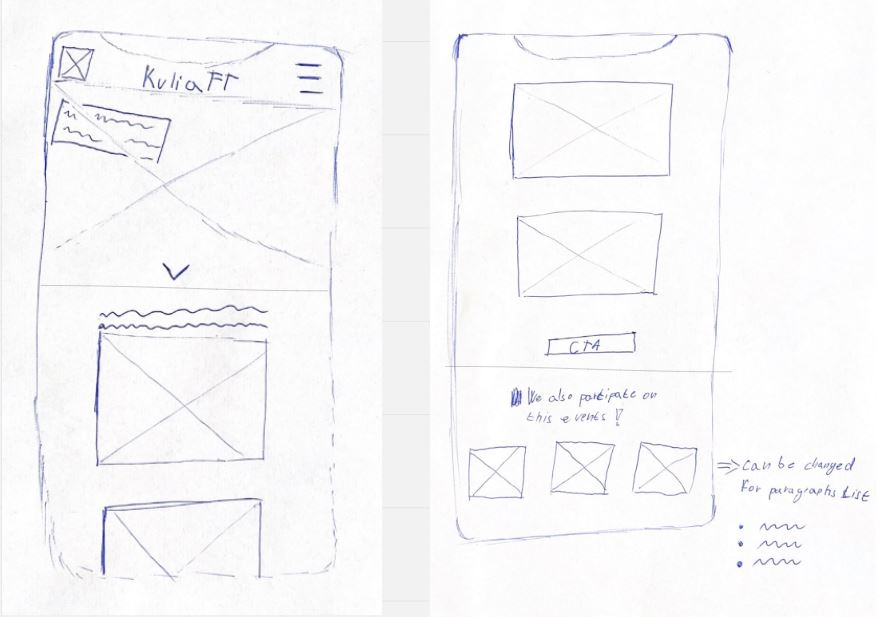 KuliaFT
CTA
We also partipate on
this events !
=> Can be changed
For paragraphs List